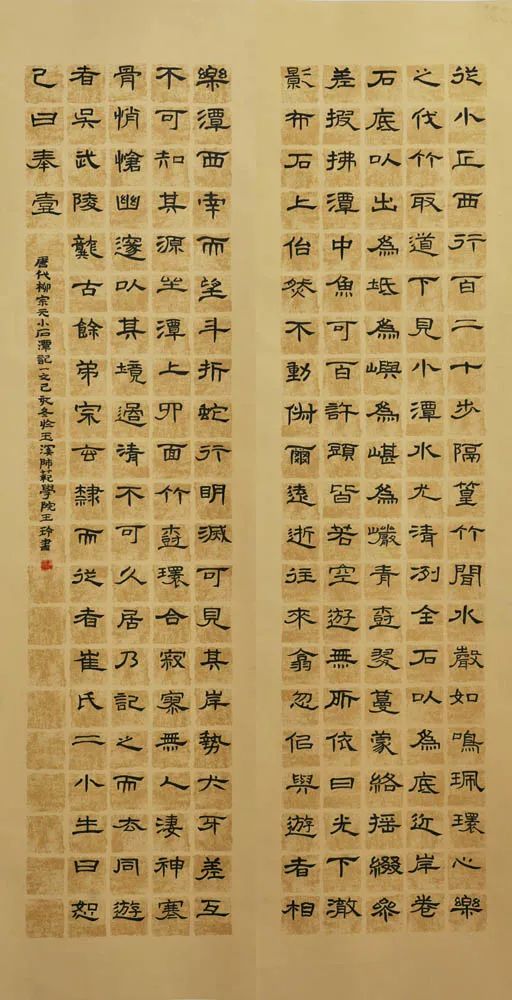 從小丘西行百二十步隔篁竹聞水聲如鳴珮環心樂
之伐竹取道下見小潭水尤清冽全石以為底近岸卷
石底以出為坻為嶼為嵁為巖青樹翠蔓蒙絡搖綴參
差披拂潭中魚可百許頭皆若空遊無所依日光下澈
影布石上佁然不動俶爾遠逝往來翕忽佀與遊者相
樂潭西南而望斗折蛇行明滅可見其岸勢犬牙差互
不可知其源坐潭上四面竹樹環合寂寥無人淒神寒
骨悄愴幽邃以其境過清不可久居乃記之而去同遊
者吳武陵龔古餘弟宗玄隸而從者崔氏二小生曰恕
己曰奉壹
唐代柳宗元小石潭記一文己亥冬於玉溪師範學院王玲書